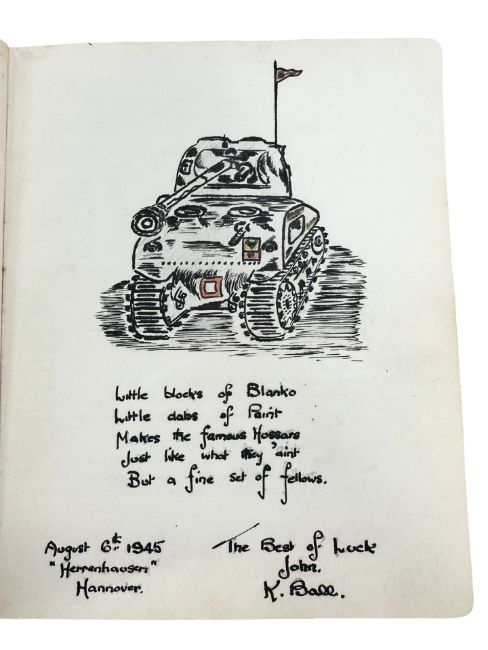 Little blocks of Blanko
Little dabs of Paint
Makes the famous Hossars
Just like what they 'aint
But a fine set of fellows.
August 6th 1945
"Herrenhausen"
Hannover.
The Best of Luck
John.
K. Ball.